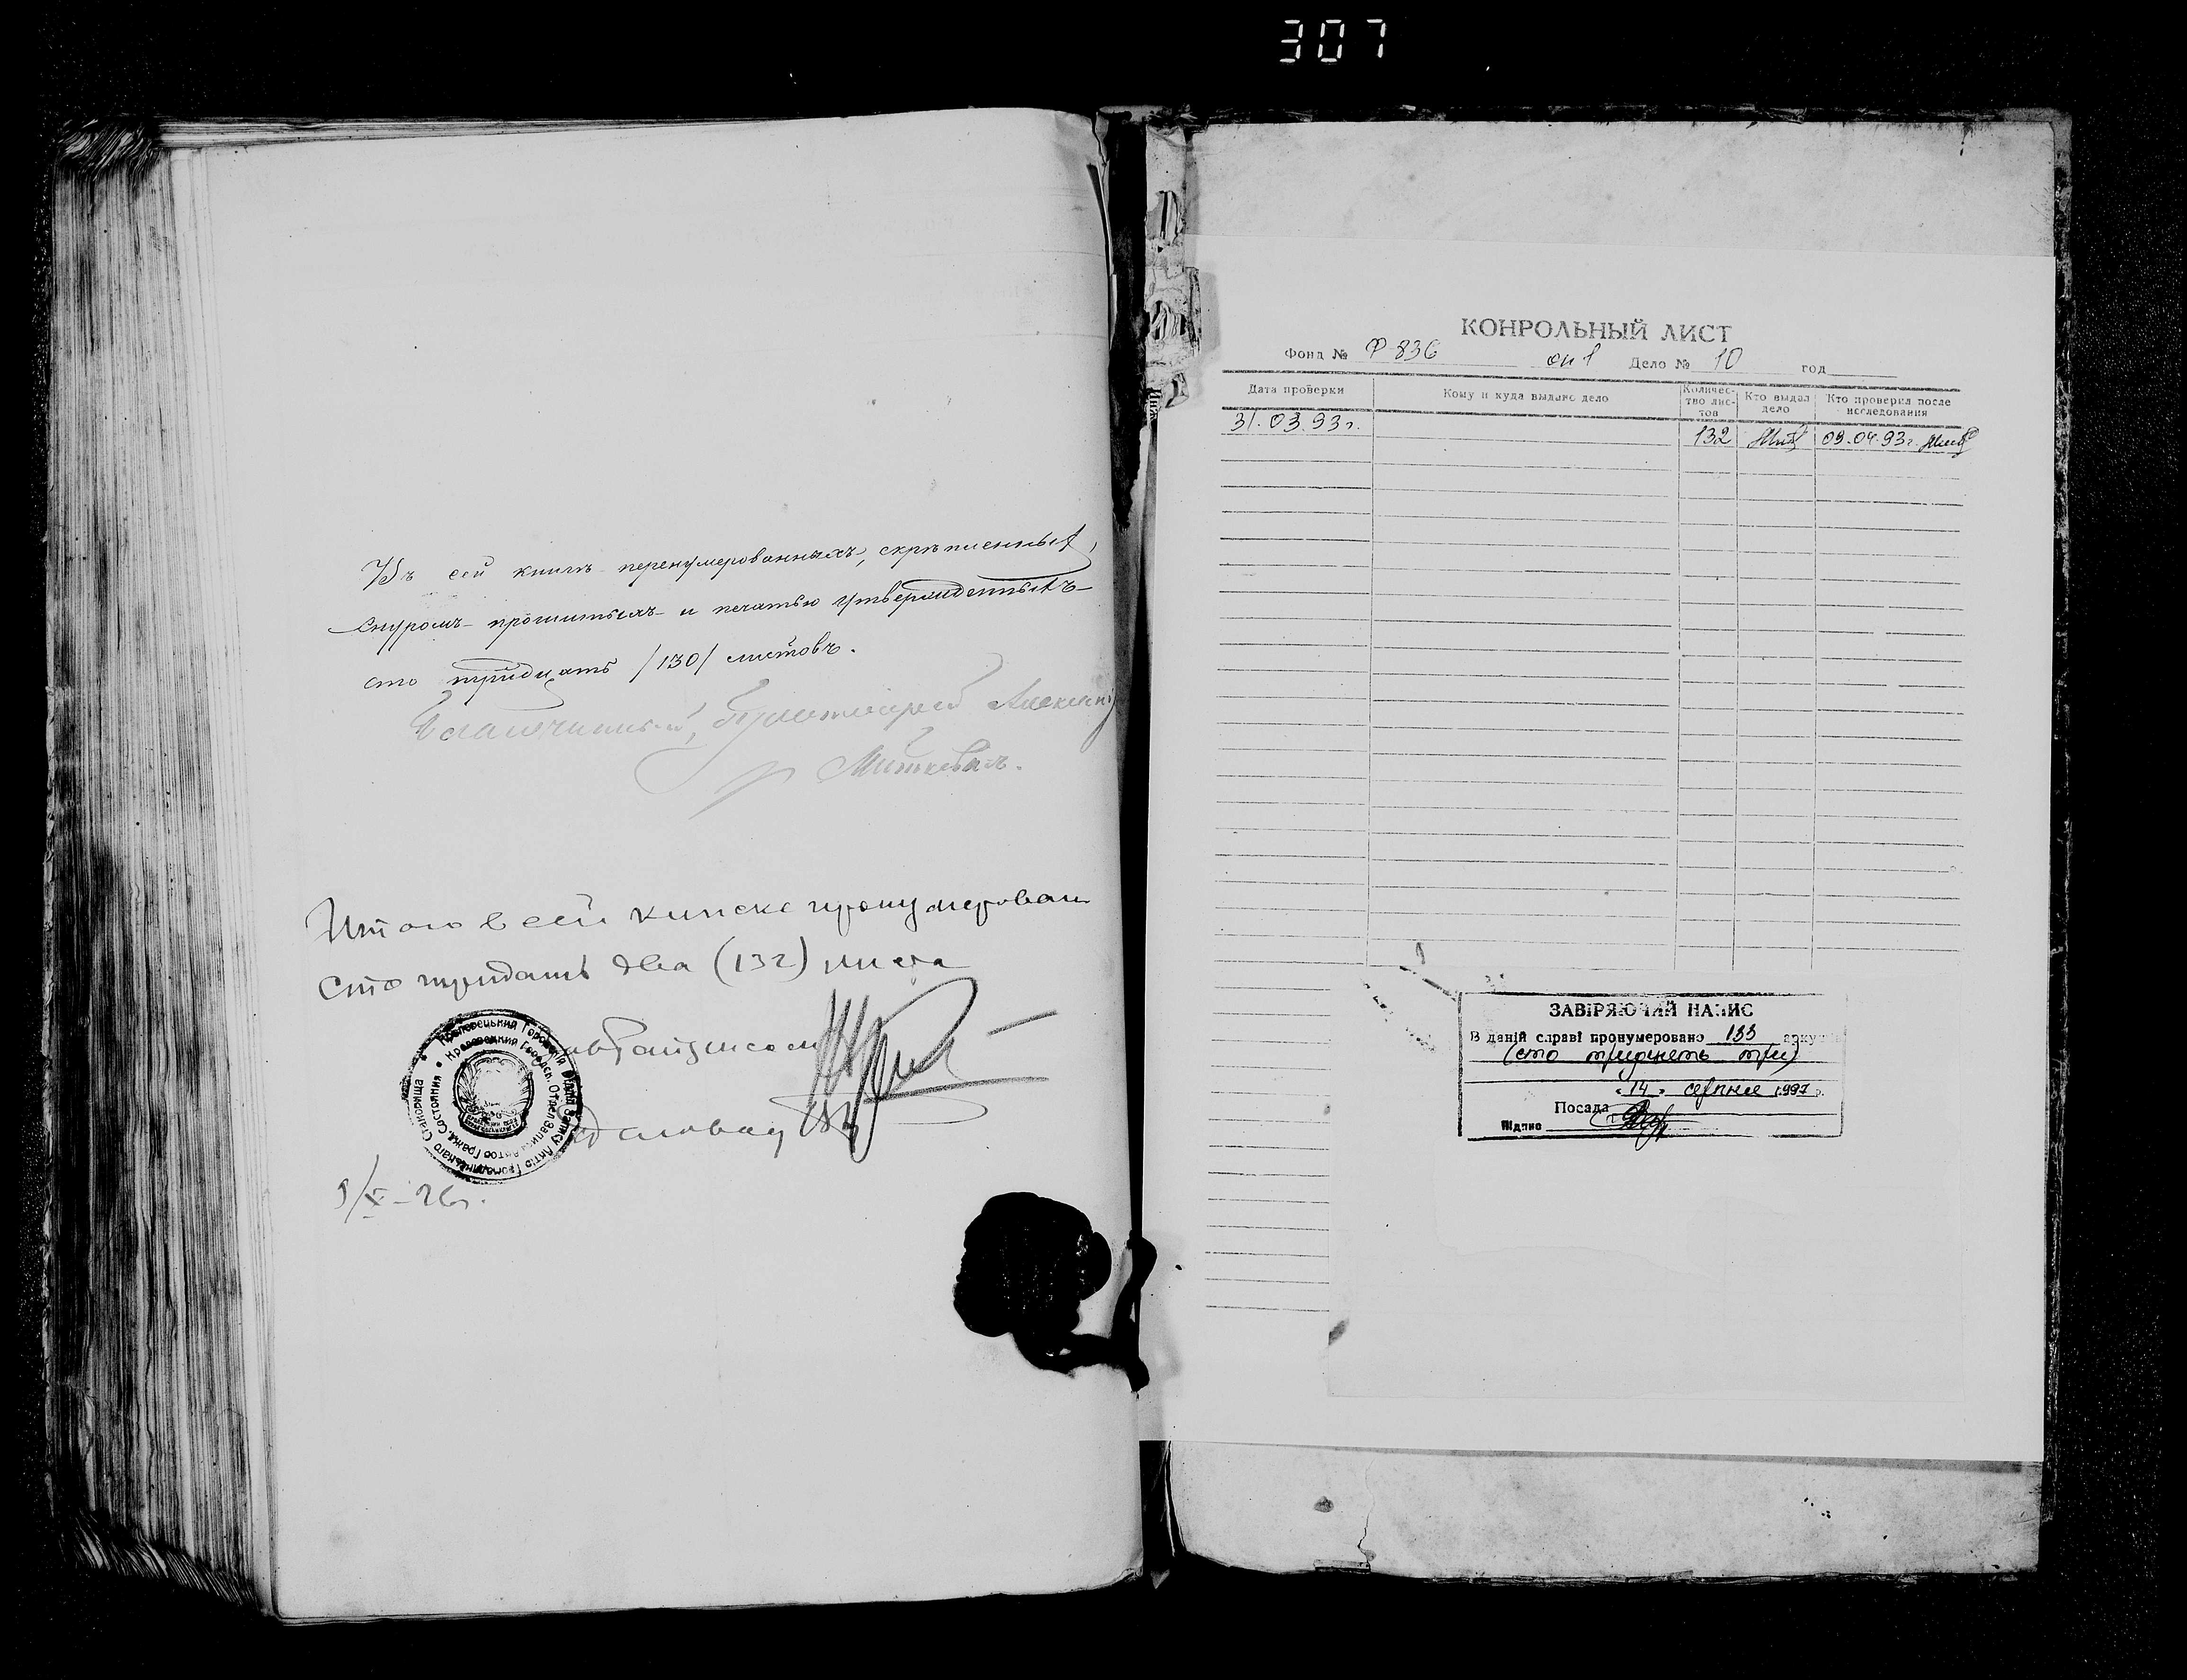 307
Въ сей книгѣ перенумерованныхъ, скрѣпленныхъ,
снуромъ прошитыхъ и печатью утвержденныхъ
сто тридцать /130/ листовъ.
Благочинный, Протоіерей
Итого в сей книге пронумерован
сто тридцать два (132) листа
Кролевецький Городський Відділ Запису Актів Громадянського Становища
Кролевецкий Городск. Отдел записи Актов Гражд. Состояния
КОНРОЛЬНЫЙ ЛИСТ
Фонд № Ф-836 оп 1 Дело № 10 год
Дата проверки Кому и куда выдано дело Количес-тво лис-тов Кто выдал дело Кто проверил после исследования
31.03.93г. 132 09.04.93г.
ЗАВІРЯЮЧИЙ НАПИС
В даній справі пронумеровано 133 аркушів
(сто тридцять три)
"14" серпня 1997 р.
Посада
Підпис